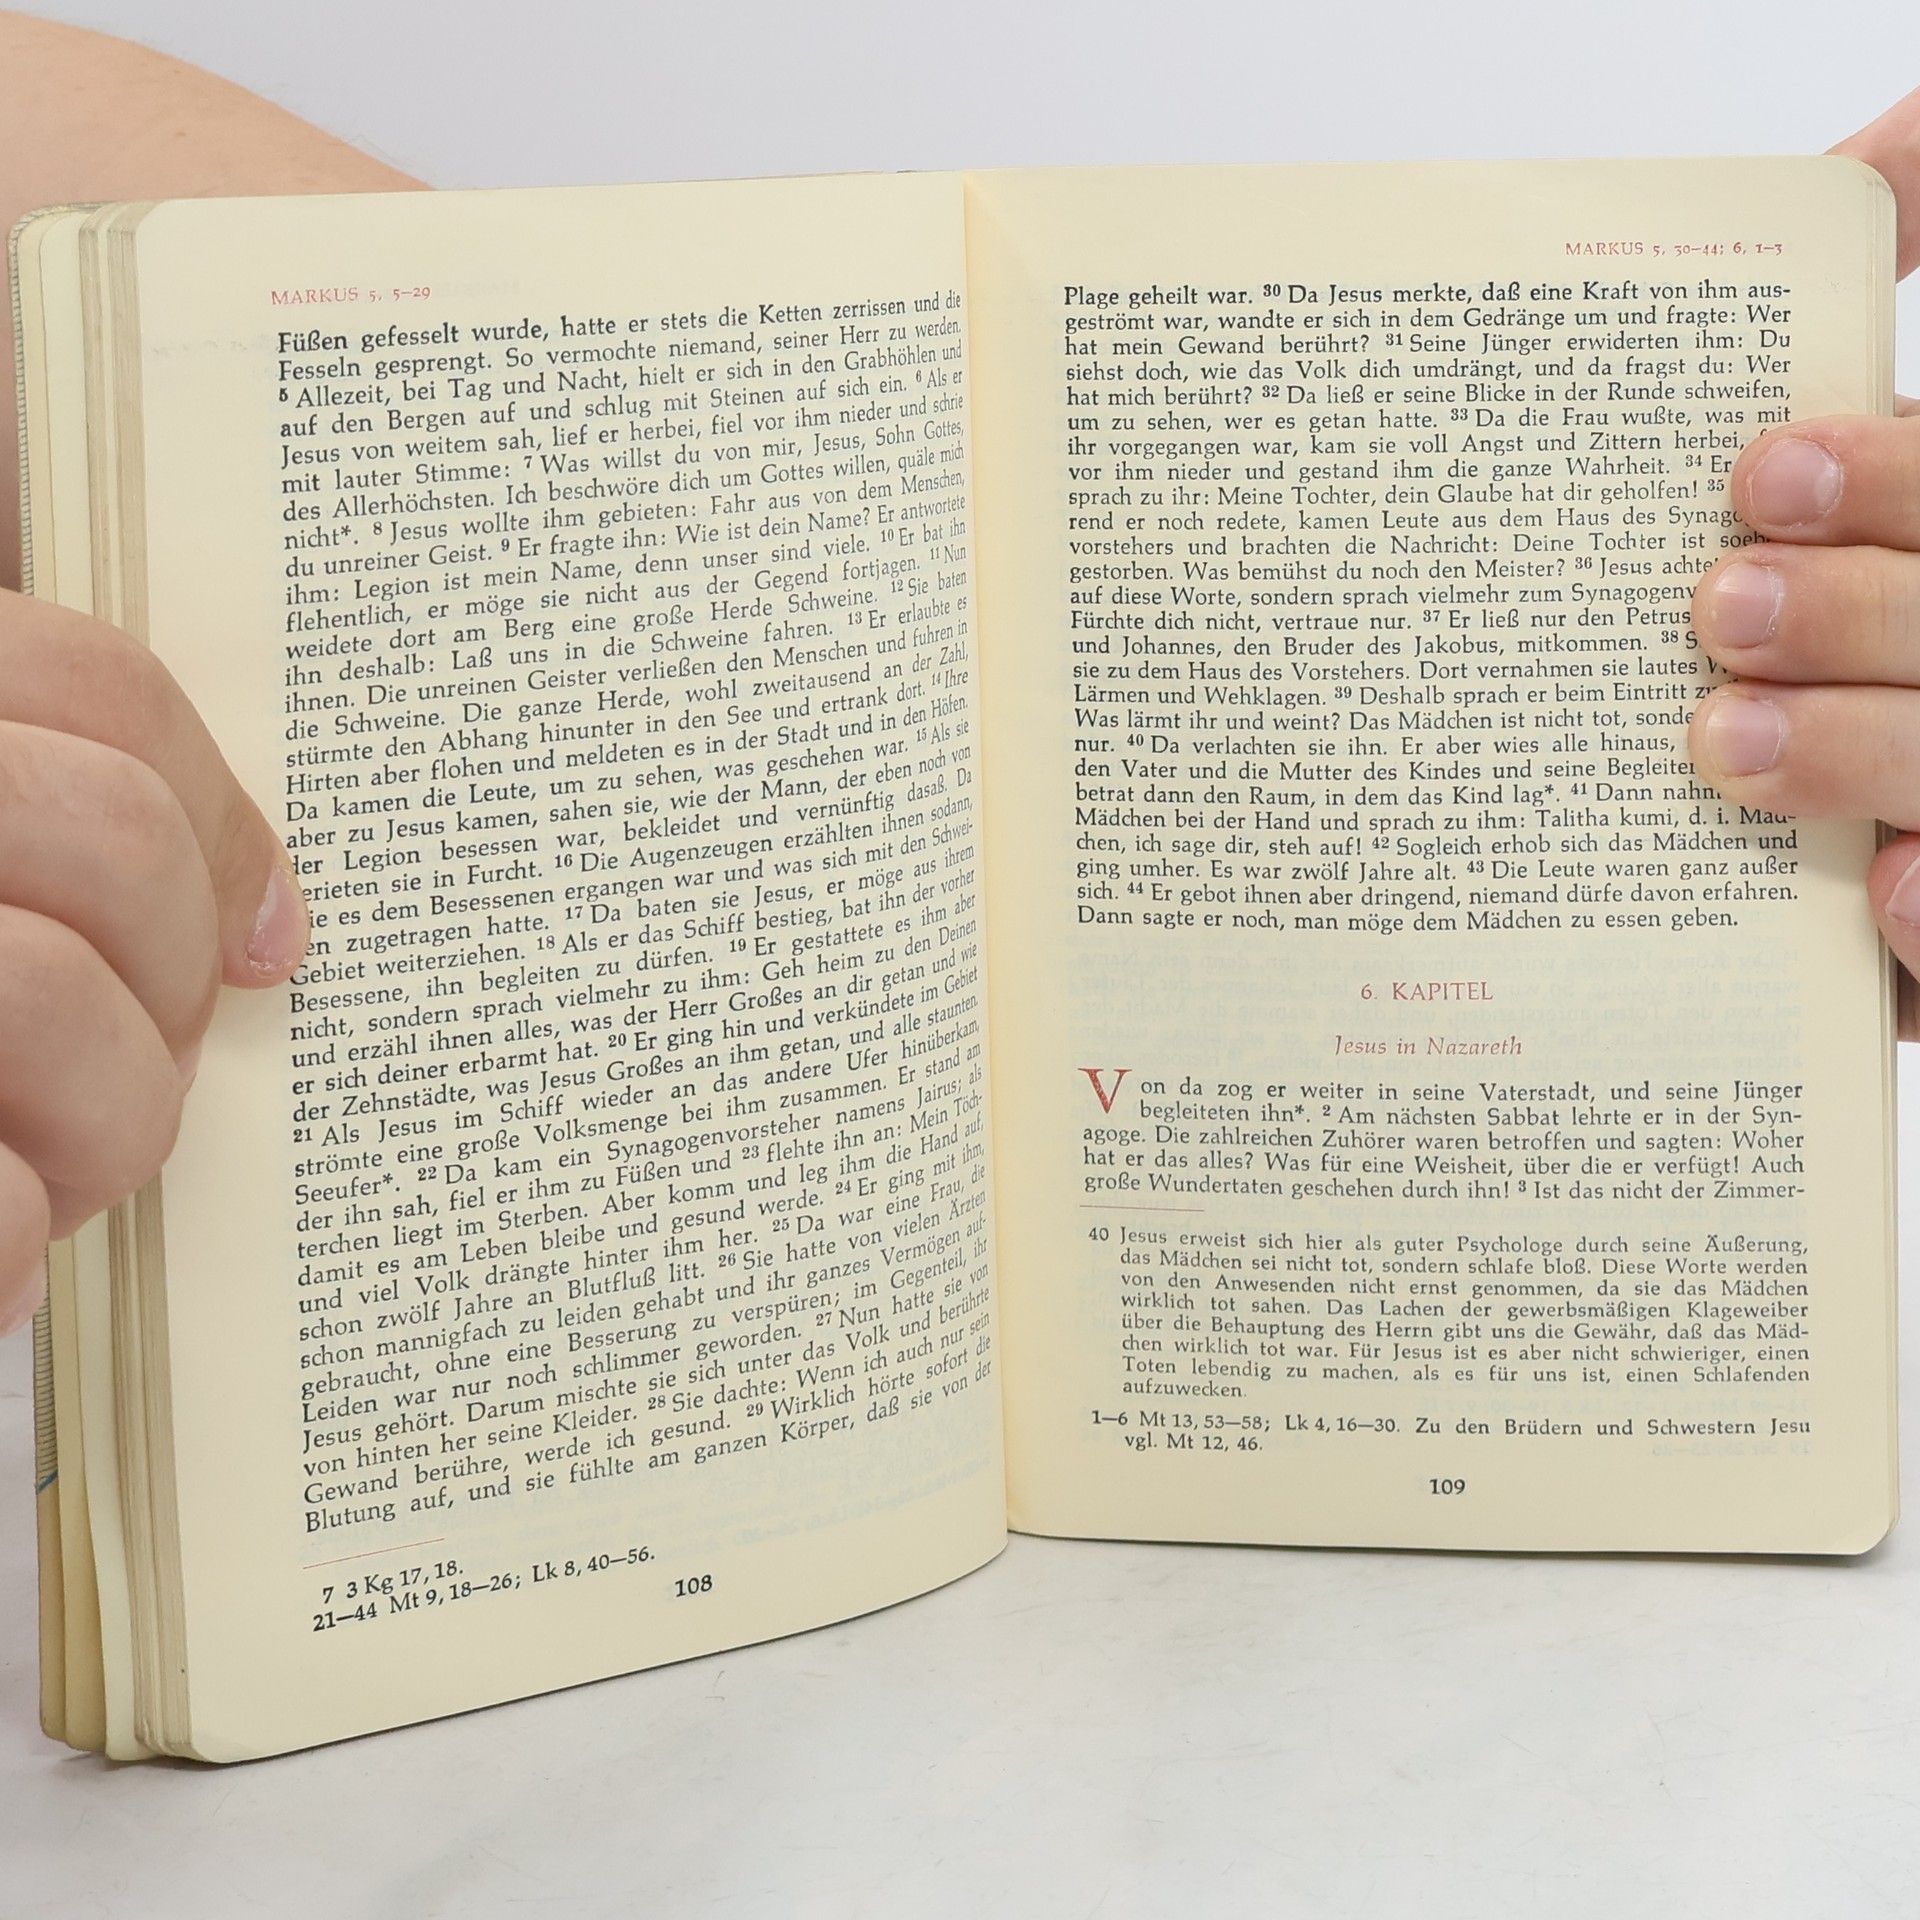 MARKUS 5, 5–29
Füßen gefesselt wurde, hatte er stets die Ketten zerrissen und die
Fesseln gesprengt. So vermochte niemand, seiner Herr zu werden.
5 Allezeit, bei Tag und Nacht, hielt er sich in den Grabhöhlen und
auf den Bergen auf und schlug mit Steinen auf sich ein. 6 Als er
Jesus von weitem sah, lief er herbei, fiel vor ihm nieder und schrie
mit lauter Stimme: 7 Was willst du von mir, Jesus, Sohn Gottes,
des Allerhöchsten. Ich beschwöre dich um Gottes willen, quäle mich
nicht*. 8 Jesus wollte ihm gebieten: Fahr aus von dem Menschen,
du unreiner Geist. 9 Er fragte ihn: Wie ist dein Name? Er antwortete
ihm: Legion ist mein Name, denn unser sind viele. 10 Er bat ihn
flehentlich, er möge sie nicht aus der Gegend fortjagen. 11 Nun
weidete dort am Berg eine große Herde Schweine. 12 Sie baten
ihn deshalb: Laß uns in die Schweine fahren. 13 Er erlaubte es
ihnen. Die unreinen Geister verließen den Menschen und fuhren in
die Schweine. Die ganze Herde, wohl zweitausend an der Zahl,
stürmte den Abhang hinunter in den See und ertrank dort. 14 Ihre
Hirten aber flohen und meldeten es in der Stadt und in den Höfen.
Da kamen die Leute, um zu sehen, was geschehen war. 15 Als sie
aber zu Jesus kamen, sahen sie, wie der Mann, der eben noch von
der Legion besessen war, bekleidet und vernünftig dasaß. Da
erieten sie in Furcht. 16 Die Augenzeugen erzählten ihnen sodann,
ie es dem Besessenen ergangen war und was sich mit den Schwei-
en zugetragen hatte. 17 Da baten sie Jesus, er möge aus ihrem
Gebiet weiterziehen. 18 Als er das Schiff bestieg, bat ihn der vorher
Besessene, ihn begleiten zu dürfen. 19 Er gestattete es ihm aber
nicht, sondern sprach vielmehr zu ihm: Geh heim zu den Deinen
und erzähl ihnen alles, was der Herr Großes an dir getan und wie
er sich deiner erbarmt hat. 20 Er ging hin und verkündete im Gebiet
der Zehnstädte, was Jesus Großes an ihm getan, und alle staunten.
21 Als Jesus im Schiff wieder an das andere Ufer hinüberkam,
strömte eine große Volksmenge bei ihm zusammen. Er stand am
Seeufer*. 22 Da kam ein Synagogenvorsteher namens Jairus; als
der ihn sah, fiel er ihm zu Füßen und 23 flehte ihn an: Mein Töch-
terchen liegt im Sterben. Aber komm und leg ihm die Hand auf,
damit es am Leben bleibe und gesund werde. 24 Er ging mit ihm,
und viel Volk drängte hinter ihm her. 25 Da war eine Frau, die
schon zwölf Jahre an Blutfluß litt. 26 Sie hatte von vielen Ärzten
schon mannigfach zu leiden gehabt und ihr ganzes Vermögen auf-
gebraucht, ohne eine Besserung zu verspüren; im Gegenteil, ihr
Leiden war nur noch schlimmer geworden. 27 Nun hatte sie von
Jesus gehört. Darum mischte sie sich unter das Volk und berührte
von hinten her seine Kleider. 28 Sie dachte: Wenn ich auch nur sein
Gewand berühre, werde ich gesund. 29 Wirklich hörte sofort die
Blutung auf, und sie fühlte am ganzen Körper, daß sie von der
7 3 Kg 17, 18.
21–44 Mt 9, 18–26; Lk 8, 40–56.
108
MARKUS 5, 30–44; 6, 1–3
Plage geheilt war. 30 Da Jesus merkte, daß eine Kraft von ihm aus-
geströmt war, wandte er sich in dem Gedränge um und fragte: Wer
hat mein Gewand berührt? 31 Seine Jünger erwiderten ihm: Du
siehst doch, wie das Volk dich umdrängt, und da fragst du: Wer
hat mich berührt? 32 Da ließ er seine Blicke in der Runde schweifen,
um zu sehen, wer es getan hatte. 33 Da die Frau wußte, was mit
ihr vorgegangen war, kam sie voll Angst und Zittern herbei,
vor ihm nieder und gestand ihm die ganze Wahrheit. 34 Er
sprach zu ihr: Meine Tochter, dein Glaube hat dir geholfen! 35
rend er noch redete, kamen Leute aus dem Haus des Synago
vorstehers und brachten die Nachricht: Deine Tochter ist soeb
gestorben. Was bemühst du noch den Meister? 36 Jesus achte
auf diese Worte, sondern sprach vielmehr zum Synagogenv
Fürchte dich nicht, vertraue nur. 37 Er ließ nur den Petrus
und Johannes, den Bruder des Jakobus, mitkommen. 38 S
sie zu dem Haus des Vorstehers. Dort vernahmen sie lautes
Lärmen und Wehklagen. 39 Deshalb sprach er beim Eintritt zu
Was lärmt ihr und weint? Das Mädchen ist nicht tot, sonde
nur. 40 Da verlachten sie ihn. Er aber wies alle hinaus,
den Vater und die Mutter des Kindes und seine Begleiter
betrat dann den Raum, in dem das Kind lag*. 41 Dann nahm
Mädchen bei der Hand und sprach zu ihm: Talitha kumi, d. i. Mäd-
chen, ich sage dir, steh auf! 42 Sogleich erhob sich das Mädchen und
ging umher. Es war zwölf Jahre alt. 43 Die Leute waren ganz außer
sich. 44 Er gebot ihnen aber dringend, niemand dürfe davon erfahren.
Dann sagte er noch, man möge dem Mädchen zu essen geben.
6. KAPITEL
Jesus in Nazareth
Von da zog er weiter in seine Vaterstadt, und seine Jünger
begleiteten ihn*. 2 Am nächsten Sabbat lehrte er in der Syn-
agoge. Die zahlreichen Zuhörer waren betroffen und sagten: Woher
hat er das alles? Was für eine Weisheit, über die er verfügt! Auch
große Wundertaten geschehen durch ihn! 3 Ist das nicht der Zimmer-
40 Jesus erweist sich hier als guter Psychologe durch seine Äußerung,
das Mädchen sei nicht tot, sondern schlafe bloß. Diese Worte werden
von den Anwesenden nicht ernst genommen, da sie das Mädchen
wirklich tot sahen. Das Lachen der gewerbsmäßigen Klageweiber
über die Behauptung des Herrn gibt uns die Gewähr, daß das Mäd-
chen wirklich tot war. Für Jesus ist es aber nicht schwieriger, einen
Toten lebendig zu machen, als es für uns ist, einen Schlafenden
aufzuwecken.
1–6 Mt 13, 53–58; Lk 4, 16–30. Zu den Brüdern und Schwestern Jesu
vgl. Mt 12, 46.
109